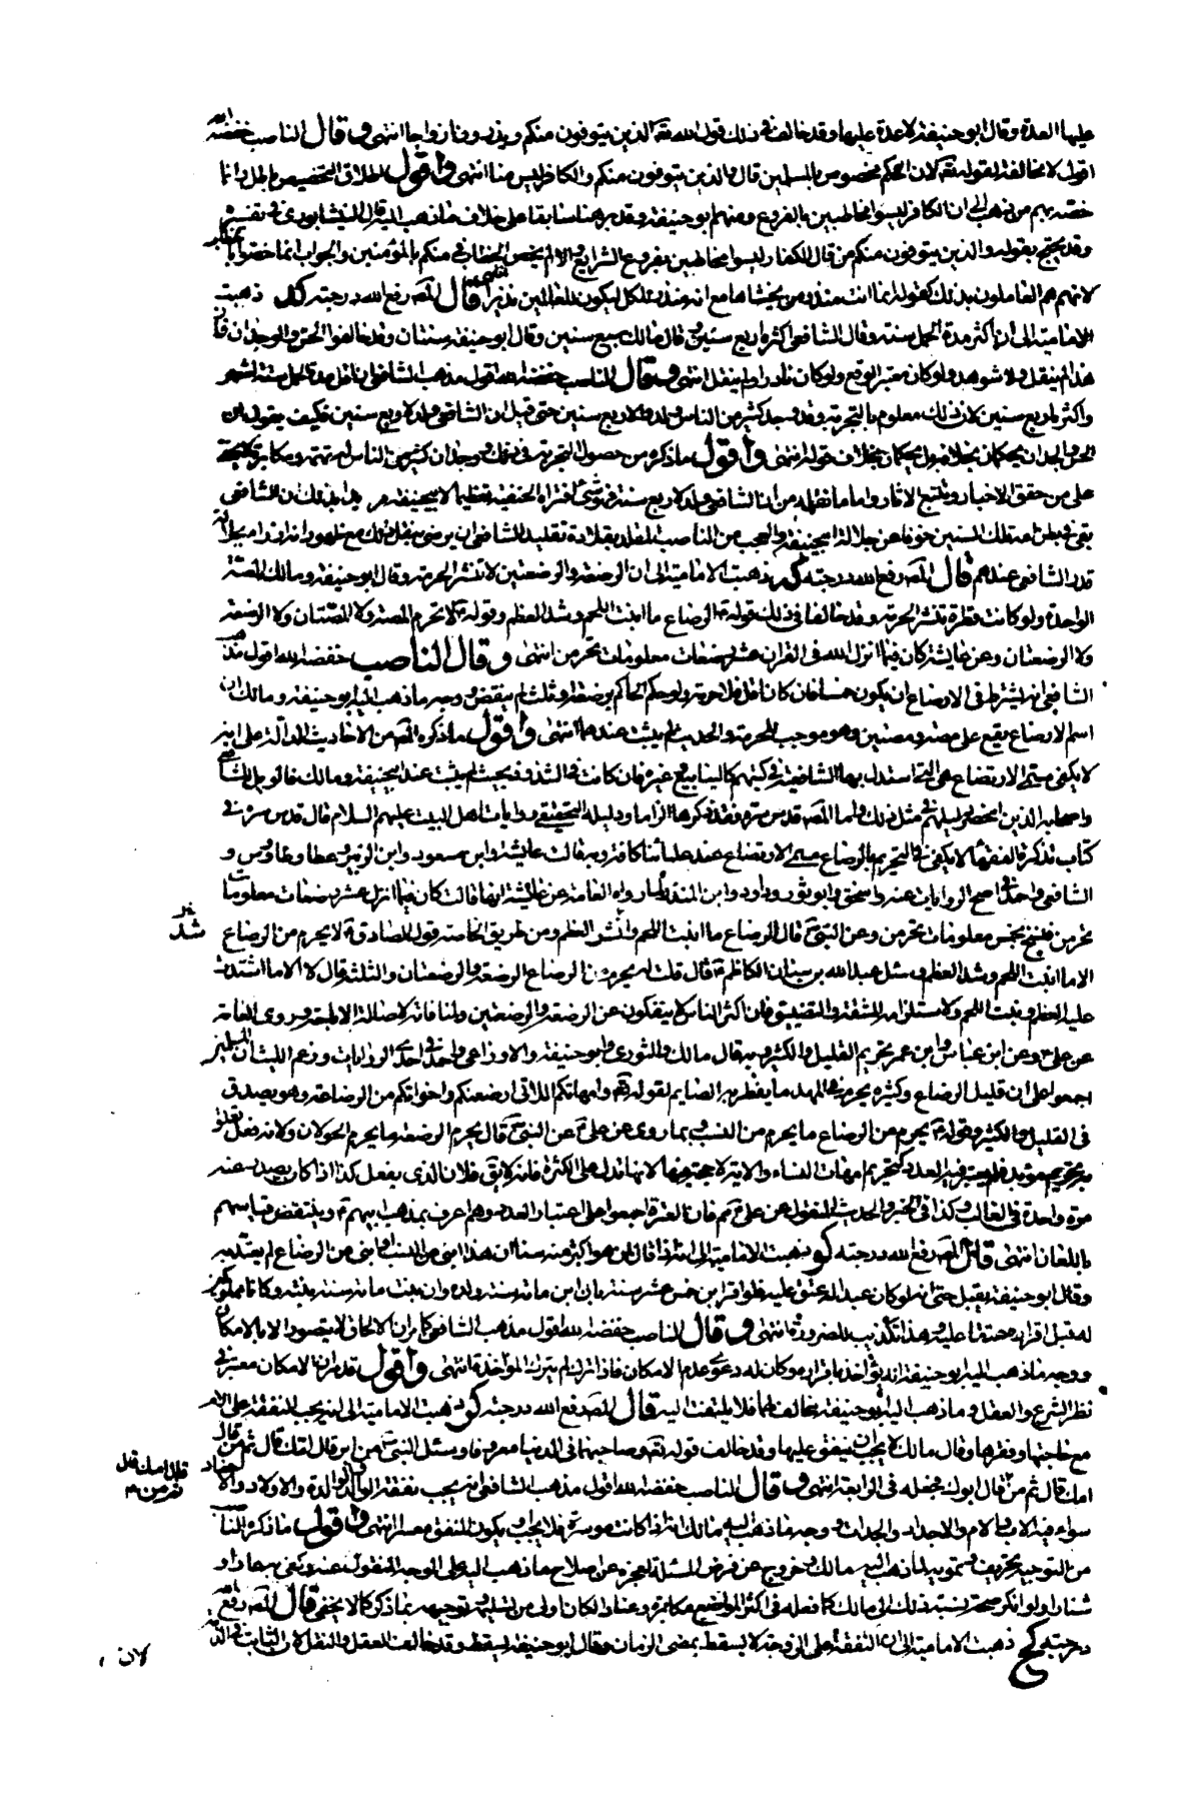 عليها العدة وقال ابو حنيفة لاعدة عليها وقد خالف في ذلك قول الله تعالى الذين يتوفون منكم ويذرون ازواجا انتهى وقال الناصب خفضه الله
اقول لا مخالفة لقوله تعالى لان الحكم مخصوص بالمسلمين قال والذين يتوفون منكم والكافر ليس منا انتهى واقول اطلاق التخصيص باطل وانا
خصه بهم من ذهب الى ان الكافر ليسوا مخاطبين بالفروع ومنهم ابو حنيفة وقد برهنا سابقا على خلاف ما ذهب اليه قال النيشابوري في تفسيره
وقد يحتج بقوله والذين يتوفون منكم من قال الكفار ليسوا مخاطبين بفروع الشرايع والا لم يخص الخطاب في منكم بالمؤمنين والجواب انما خصوا بالخطاب
لانهم هم العاملون بذلك كقوله انما انت منذر من يخشاها مع انه منذر للكل ليكون للعالمين نذيرا قال المص رفع الله درجته ذهبت
الامامية الى ان اكثر مدة الحمل سنة وقال الشافعي اكثره اربع سنين وقال مالك سبع سنين وقال ابو حنيفة سنتان وقد خالفوا الحس والوجدان فان
هذا لم ينقل ولا شوهد ولو كان معتبر الوقع ولو كان نادرا لم ينقل انتهى وقال الناصب خفضه الله اقول مذهب الشافعي ان اقل مدة الحمل ستة اشهر
واكثره اربع سنين لان ذلك معلوم بالتجربة وقد وجد كثير من الناس ولد والاربع سنين حتى قيل ان الشافعي ولد لاربع سنين فكيف يقول ان
الحس والوجدان يحكمان بخلافه بل يحكمان بخلاف قوله انتهى واقول ما ذكره من حصول التجربة في ذلك ووجدان كثير من الناس
على من حقق الاخبار وتتبع الاثار واما ما نقله من ان الشافعي ولد لاربع سنة فهو شئ افتراه الحنفية تعظيما لابي حنيفة ان الشافعي
بقى في بطن امه تلك السنين خوفا من جلالة ابي حنيفة والعجب من الناصب المقلد بقلادة تقليد الشافعي ان يرضى بنقل ذلك مع ظهور
قدر الشافعي عندهم قال المص رفع الله درجته ذهبت الامامية الى ان الرضعة والرضعتين لا تنشر الحرمة وقال ابو حنيفة ومالك المصة
الواحدة ولو كانت قطرة تنشر الحرمة وقد خالفا في ذلك قوله الرضاع ما انبت اللحم وشد العظم وقوله لا تحرم المصة ولا المصتان ولا الرضعة
ولا الرضعتان وعن عايشة كان فيما انزل الله في القران عشر رضعات معلومات تحرمن انتهى وقال الناصب خفضه الله اقول مذهب
الشافعي انه يشترط في الارضاع ان يكون خمسا فان كان اقل فلا حرمة ولو حكم الحاكم برضعة وثلث لم ينقض ووجه ما ذهب اليه ابو حنيفة ومالك ان
اسم الارضاع يقع على مصة ومصتين وهو موجب للحرمة والحديث لم يثبت عندهما انتهى واقول ما ذكره المص من الاحاديث الدالة على انه
لا يكفي مسمى الارتضاع هي التي استدل بها الشافعية في كتبهم كالينابيع وغيره فان كانت في الشذوذ بحيث لم يثبت عند ابي حنيفة ومالك فالويل للشافعي
واصحابه الذين انحصر دليلهم في مثل ذلك واما المص قدس سره فقد ذكرها الزاما ودليله التحقيقي روايات اهل البيت عليهم السلام قال قدس سره في
كتاب تذكرة الفقهاء لا يكفي في التحريم بالرضاع مسمى الارتضاع عند علمائنا كافة وبه قالت عايشة وابن مسعود وابن الزبير وعطا وطاوس و
الشافعي واحمد في اصح الروايات عنه واسحق وابو ثور وداود وابن المنذر لما رواه العامة عن عايشة انها قالت كان فيما انزل عشر رضعات معلومات
تحرمن فنسخ بخمس معلومات تحرمن وعن النبي ص قال الرضاع ما انبت اللحم وانشر العظم ومن طريق الخاصة قول الصادق ع لا يحرم من الرضاع
الا ما انبت اللحم وشد العظم وسئل عبدالله بن سنان الكاظم ع قال قلت له يحرم من الرضاع الرضعة والرضعتان والثلثة قال لا الا ما اشتد
عليه العظم ونبت اللحم ولاستلزامه المشقة والتضييق فان اكثر الناس لا ينفكون عن الرضعة والرضعتين ولمنافاته لاصالة الاباحة وروى العامة
عن علي ع وعن ابن عباس وابن عمر تحريم القليل والكثير وبه قال مالك والثوري وابو حنيفة والاوزاعي واحمد في احدى الروايات وزعم الليث ان المسلمين
اجمعوا على ان قليل الرضاع وكثيره يحرم في المهد ما يفطر به الصايم لقوله تعالى وامهاتكم اللاتي ارضعنكم واخواتكم من الرضاعة وهو يصدق
في القليل والكثير وقوله ع يحرم من الرضاع ما يحرم من النسب وبما روى عن علي ع عن النبي ص قال يحرم الرضعة ما يحرم الحولان ولانه فعل تعلق
به تحريم مؤبد فلم يعتبر فيه العدد كتحريم امهات النساء والاية لا حجة فيها لانها تدل على الكثرة فانه لا يق فلان الذي يفعل كذا اذا كان يصدر عنه
مرة واحدة في الغالب وكذا في الخبر والحديث المنقول عن علي ع فان العترة اجمعوا على اعتبار العدد وهم اعرف بمذهب ابيهم ع وينتقض قياسهم
باللعان انتهى قال المص رفع الله درجته كو ذهبت الامامية الى انه اذا قال لمن هو اكبر منه سنا ان هذا ابني من النسب او ابني من الرضاع لم يعتد به
وقال ابو حنيفة يقبل حتى انه لو كان عبدا له عتق عليه فلو اقر ابن خمس عشر سنة بان ابن مائة سنة ولده وان بنت مائة سنة بنته وكانا مملوكين
له يقبل اقراره وعتقا عليه وهذا تكذيب للضرورة انتهى وقال الناصب خفضه الله اقول مذهب الشافعي كما مر ان الالحاق لا يتصور الا بالامكان
ووجه ما ذهب اليه ابو حنيفة انه يؤاخذ باقراره وكان له دعوى عدم الامكان فاذا ترك لم يترك المؤاخذة انتهى واقول قد مر ان الامكان معتبر في
نظر الشرع والعقل وما ذهب اليه ابو حنيفة مخالف لهما فلا يلتفت اليه قال المص رفع الله درجته كز ذهبت الامامية الى انه يجب النفقة على الام
مع حاجتها وفقرها وقال مالك لا يجب ان ينفق عليها وقد خالف قوله تعالى وصاحبهما في الدنيا معروفا وسئل النبي ص من ابر قال امك قال ثم من قال
امك قال ثم من قال ابوك فجعله في الرابعة انتهى وقال الناصب خفضه الله اقول مذهب الشافعي انه يجب نفقة الوالد والوالدة والاولاد والاحفاد
سواء فيه الاب والام والاجداد والجدات ووجه ما ذهب اليه مالك انه اذا كانت موسرة فلا يجب ويكون المنفق معسرا انتهى واقول ما ذكره الناصب
من التوجيه تحريف وتمويه لما ذهب اليه مالك وخروج عن فرض المسئلة لعجزه عن اصلاح ما ذهب اليه على الوجه المنقول عنه وكفى به عارا و
شنارا ولو انكر صحة نسبة ذلك الى مالك كما فعله في اكثر المواضع مكابرة وعنادا لكان اولى من تسليمه وتوجيهه بما ذكر كما لا يخفى قال المص رفع
درجته كح ذهبت الامامية الى ان النفقة على الزوجة لا يسقط بمضى الزمان وقال ابو حنيفة يسقط وقد خالف العقل والنقل لان الثابت في الذمة
لان